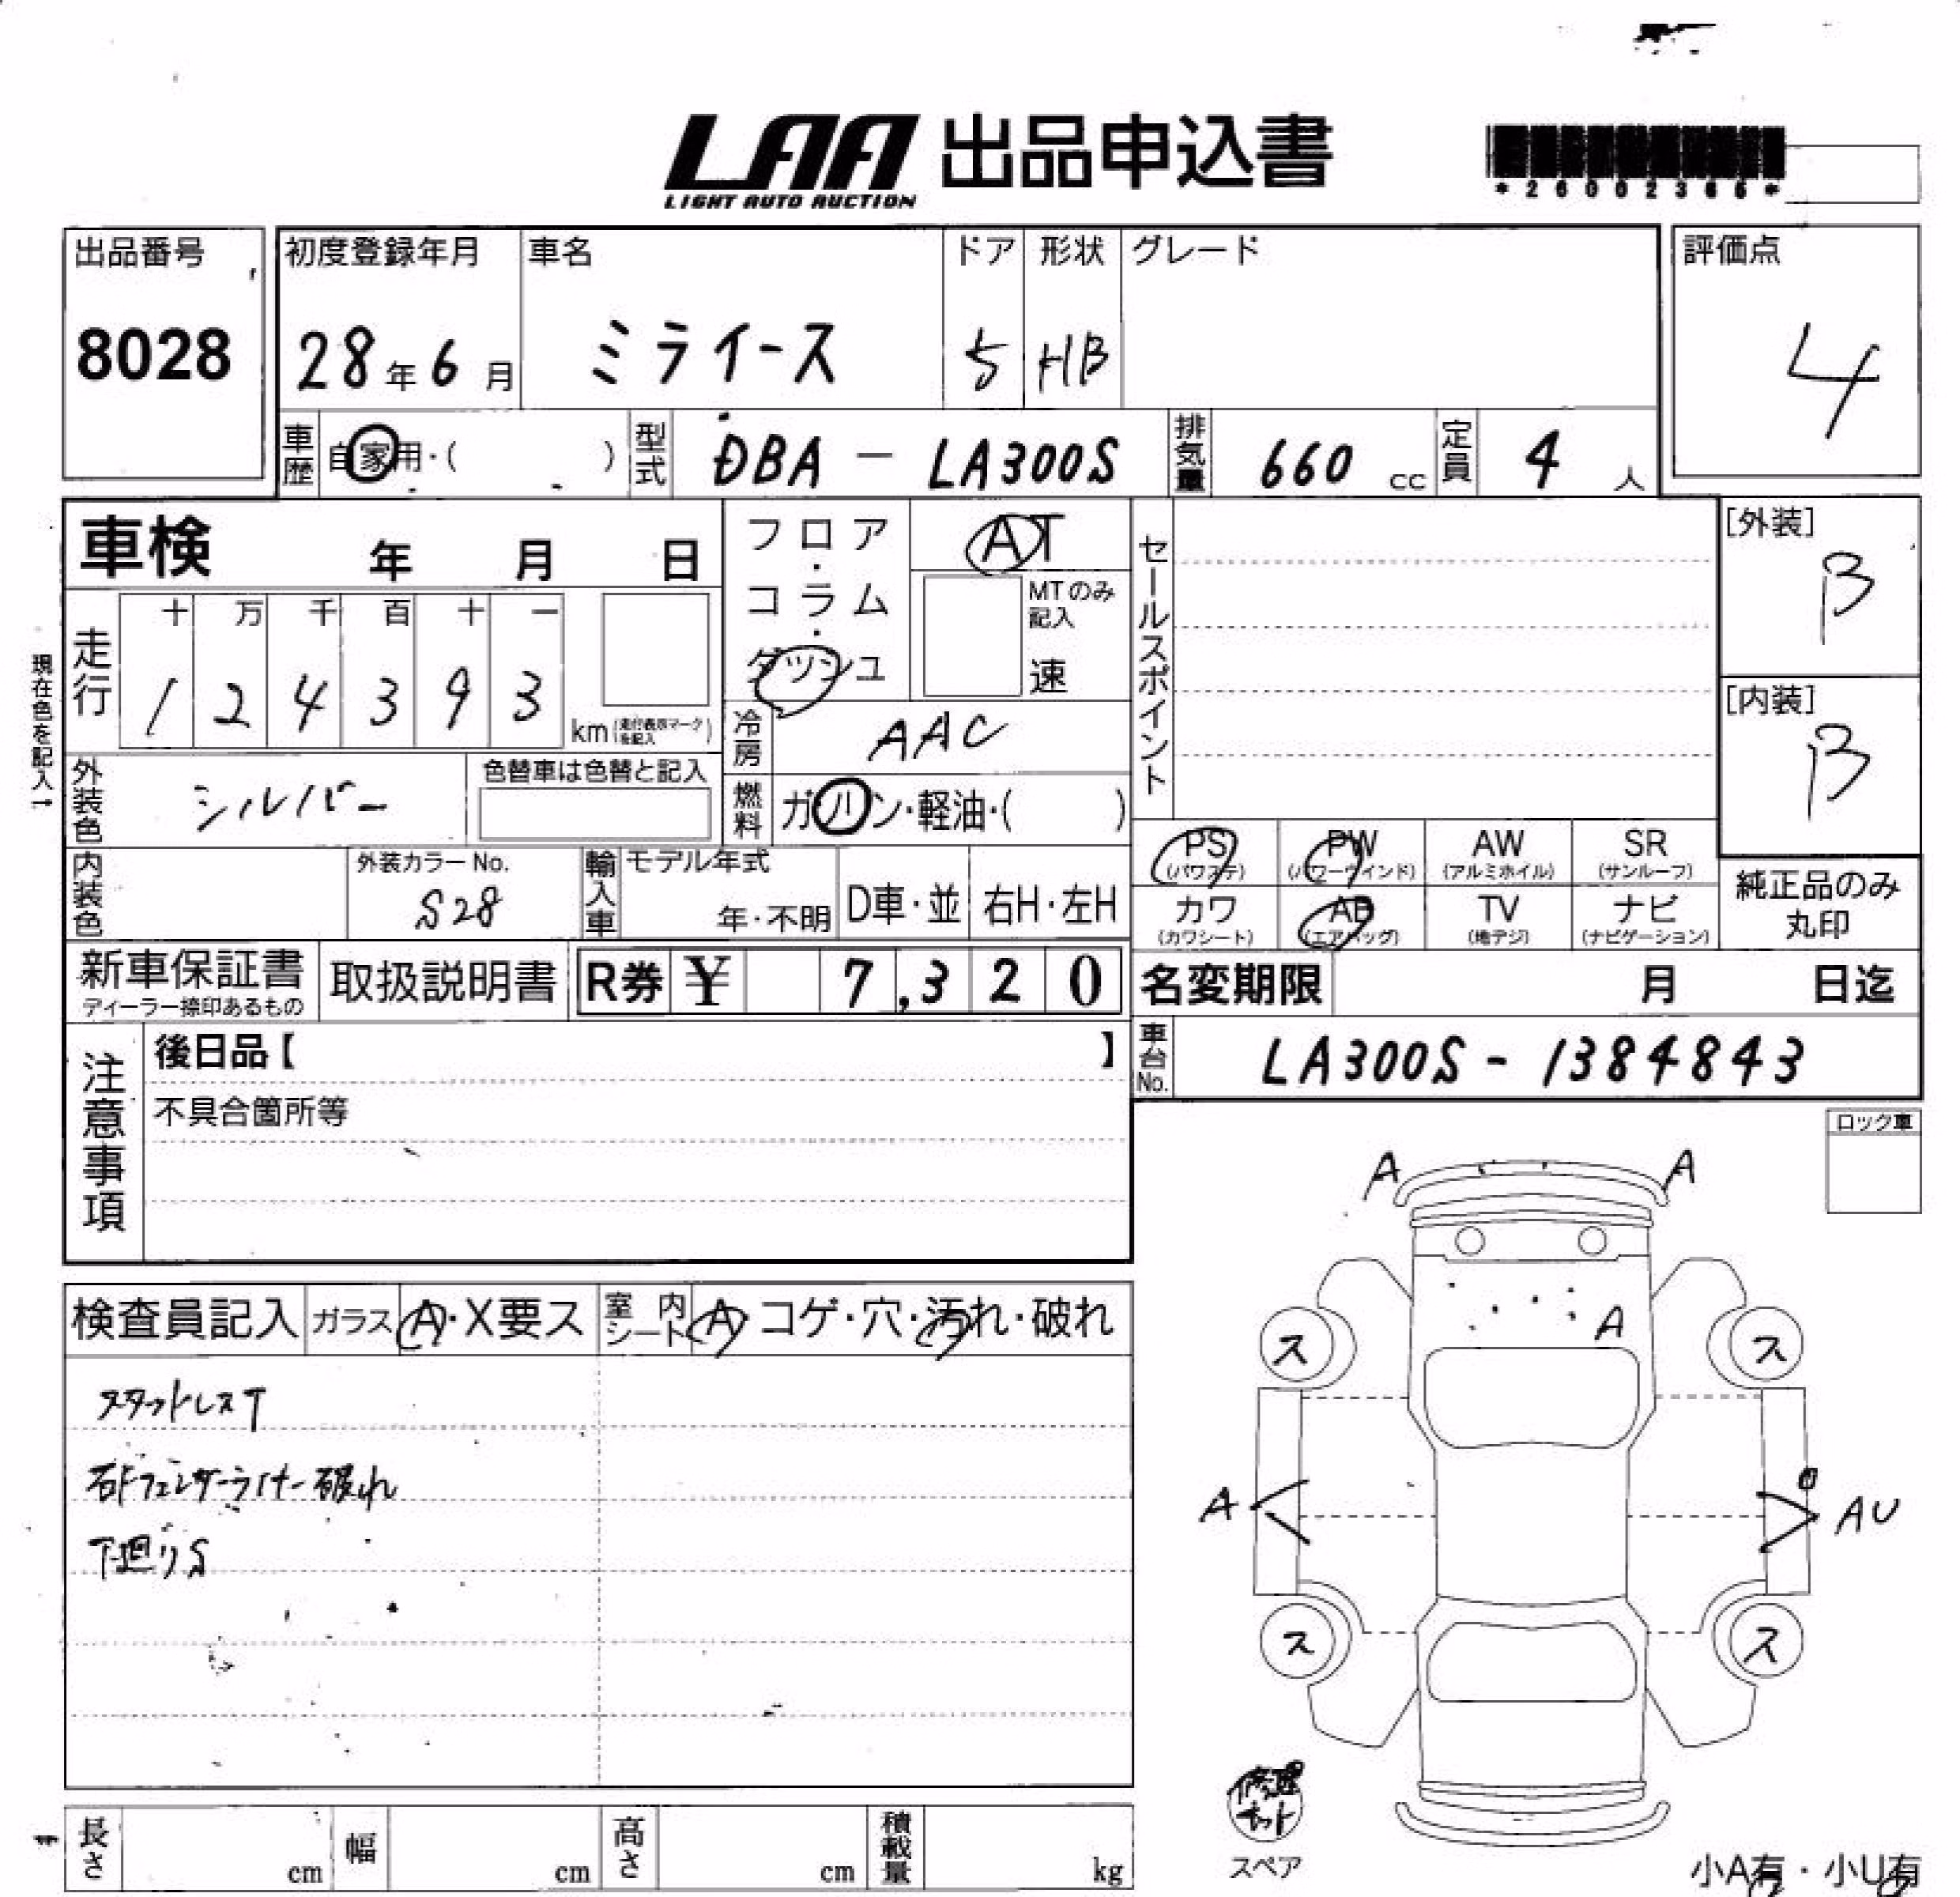 LAA 出品申込書
LIGHT AUTO AUCTION
*26002365*
出品番号
8028
初度登録年月
28年6月
車名
ミライース
ドア
5
形状
HB
グレード
評価点
4
車歴 自家用・( )
型式 DBA - LA300S
排気量 660 cc
定員 4 人
車検 年 月 日
現在色を記入→
走行
十 万 千 百 十 一
1 2 4 3 9 3
km (走行表示マークを記入)
フロア・コラム・ダッシュ
AT
MTのみ記入
速
冷房 AAC
燃料 ガソリン・軽油・( )
外装色 シルバー
色替車は色替と記入
内装色
外装カラーNo.
S28
輸入車 モデル年式
年・不明
D車・並
右H・左H
セールスポイント
[外装]
B
[内装]
B
PS (パワステ)
PW (パワーウィンド)
AW (アルミホイル)
SR (サンルーフ)
カワ (カワシート)
AB (エアバッグ)
TV (地デジ)
ナビ (ナビゲーション)
純正品のみ丸印
新車保証書
ディーラー捺印あるもの
取扱説明書
R券 ¥ 7,320
名変期限 月 日迄
車台No. LA300S - 1384843
注意事項
後日品【 】
不具合箇所等
ロック車
検査員記入 ガラス A・X要ス
室内シート A・コゲ・穴・汚れ・破れ
スタットレスT
右Fフェンダーライナー破れ
下廻りS
A A
A
ス ス
A AU
ス ス
修理キット
スペア
長さ cm
幅 cm
高さ cm
積載量 kg
小A有・小U有